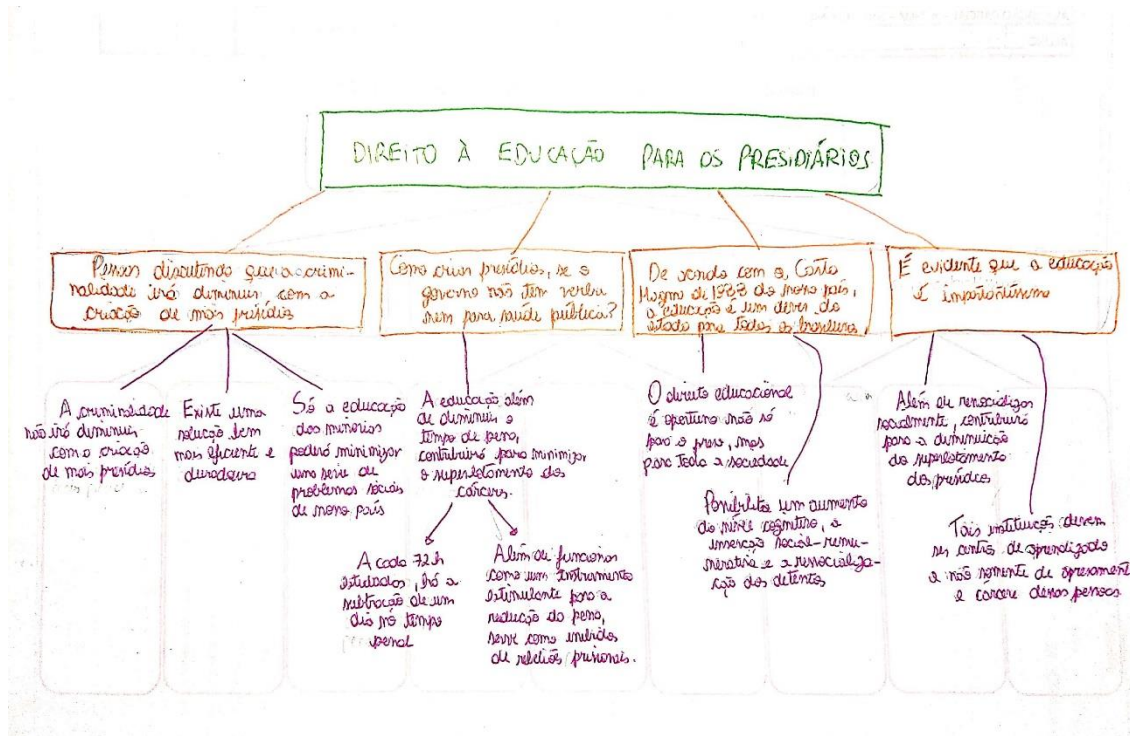 DIREITO À EDUCAÇÃO PARA OS PRESIDIÁRIOS
Pessoas discutindo que a crimi-
nalidade irá diminuir com a
criação de mais presídios
Como criar presídios, se o
governo não tem verba
nem para saúde pública?
De acordo com a, Carta
Magna de 1988 do nosso país,
a educação é um dever do
estado para todos os brasileiros
É evidente que a educação
é importantíssima
A criminalidade
não irá diminuir
com a criação
de mais presídios
Existe uma
solução bem
mais eficiente e
duradoura
Só a educação
das minorias
poderá minimizar
uma serie de
problemas sociais
de nosso país
A educação além
de diminuir o
tempo de pena,
contribuirá para minimizar
o superlotamento dos
cárceres.
A cada 72h
estudados, há a
subtração de um
dia no tempo
penal
Além de funcionar
como um instrumento
estimulante para a
redução da pena,
serve como inibidor
de rebeliões prisionais.
O direito educacional
é oportuno não só
para o preso, mas
para toda a sociedade
Possibilita um aumento
do nível cognitivo, a
inserção social-remu-
nerativa e a ressocializa-
ção dos detentos
Além de ressocializar
socialmente, contribuirá
para a diminuição
do superlotamento
dos presídios
Tais instituições devem
ser centro de aprendizado
e não somente de
e cárcere dessas pessoas